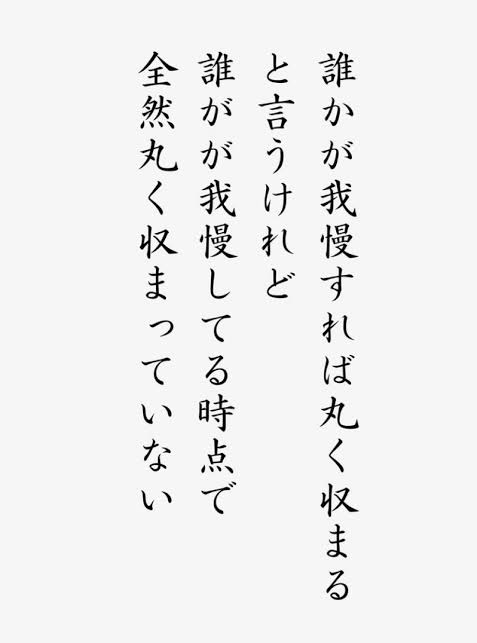 誰かが我慢すれば丸く収まる
と言うけれど
誰がが我慢してる時点で
全然丸く収まっていない